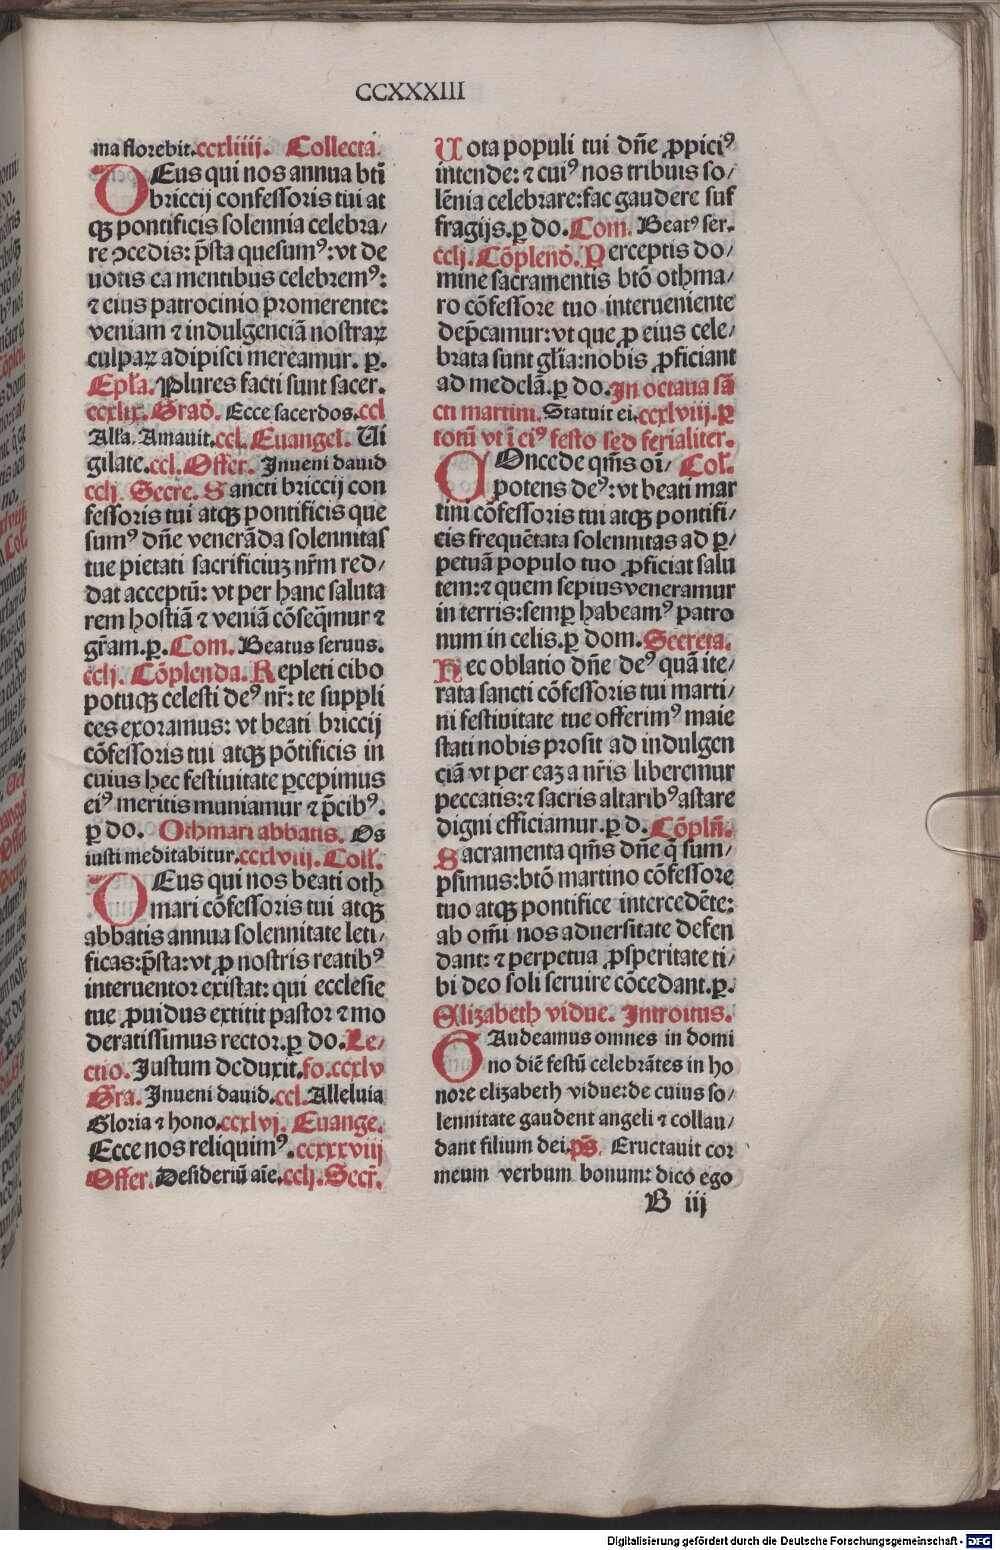 CCXXXIII
ma florebit.ccxliiii. Collecta.
DEus qui nos annua bti̅
briccij confessoris tui at
qꝫ pontificis solennia celebra/
re ↄcedis: p̅sta quesumꝰ: vt de
uotis ea mentibus celebremꝰ:
⁊ eius patrocinio promerente:
veniam ⁊ indulgenciā nostraꝝ
culpaꝝ adipisci mereamur. ꝑ.
Epl̄a. Plures facti sunt sacer.
ccxlix. Grad̄. Ecce sacerdos.ccl
All̄a. Amauit.ccl. Euangel. Ui
gilate.ccl. Offer. Inueni dauid
cclj. Secre. Sancti briccij con
fessoris tui atqꝫ pontificis que
sumꝰ dn̄e venerāda solennitas
tue pietati sacrificiuꝫ nr̄m red/
dat acceptū: vt per hanc saluta
rem hostiā ⁊ veniā cōseq̄mur ⁊
gr̄am.ꝑ. Com. Beatus seruus.
cclj. Cōplenda. Repleti cibo
potuqꝫ celesti deꝰ nr̄: te suppli
ces exoramus: vt beati briccij
cōfessoris tui atqꝫ pōtificis in
cuius hec festiuitate ꝑcepimus
eiꝰ meritis muniamur ⁊ p̄cibꝰ.
ꝑ do. Othmari abbatis. Os
iusti meditabitur.ccxlviii. Coll̄.
DEus qui nos beati oth
mari cōfessoris tui atqꝫ
abbatis annua solennitate leti/
ficas: p̄sta: vt ꝓ nostris reatibꝰ
interuentor existat: qui ecclesie
tue ꝓuidus extitit pastor ⁊ mo
deratissimus rector.ꝑ do. Le/
ctio. Justum deduxit.fo.ccxlv
Gra. Inueni dauid.ccl. Alleluia
Gloria ⁊ hono.ccxlvj. Euange.
Ecce nos reliquimꝰ.ccxxxviij
Offer. Desideriū aīe.cclj. Secr̄.
Uota populi tui dn̄e ꝓpiciꝰ
intende: ⁊ cuiꝰ nos tribuis so/
lēnia celebrare: fac gaudere suf
fragijs.ꝑ do. Com. Beatꝰ ser.
cclj. Cōplend̄. Perceptis do/
mine sacramentis btō othma/
ro cōfessore tuo interueniente
dep̄camur: vt que ꝓ eius cele/
brata sunt gl̄ia: nobis ꝓficiant
ad medelā.ꝑ do. In octaua sā
cti martini. Statuit ei.ccxlviij.ꝑ
totū vt ī eiꝰ festo sed ferialiter.
COncede qm̄s oī/ Col̄.
potens deꝰ: vt beati mar
tini cōfessoris tui atqꝫ pontifi/
cis frequētata solennitas ad ꝑ/
petuā populo tuo ꝓficiat salu
tem: ⁊ quem sepius veneramur
in terris: semꝑ habeamꝰ patro
num in celis.ꝑ dom. Secreta.
Hec oblatio dn̄e deꝰ quā ite/
rata sancti cōfessoris tui marti/
ni festiuitate tue offerimꝰ maie
stati nobis prosit ad indulgen
ciā vt per eaꝫ a nr̄is liberemur
peccatis: ⁊ sacris altaribꝰ astare
digni efficiamur.ꝑ d. Cōpln̄.
Sacramenta qm̄s dn̄e q̄ sum/
psimus: btō martino cōfessore
tuo atqꝫ pontifice intercedēte:
ab om̄i nos aduersitate defen
dant: ⁊ perpetua ꝓsperitate ti/
bi deo soli seruire cōcedant.ꝑ.
Elizabeth vidue. Introitus.
GAudeamus omnes in domi
no diē festū celebrātes in ho
nore elizabeth vidue: de cuius so/
lennitate gaudent angeli ⁊ collau/
dant filium dei.ps̄. Eructauit cor
meum verbum bonum: dico ego
B iij
Digitalisierung gefördert durch die Deutsche Forschungsgemeinschaft - DFG